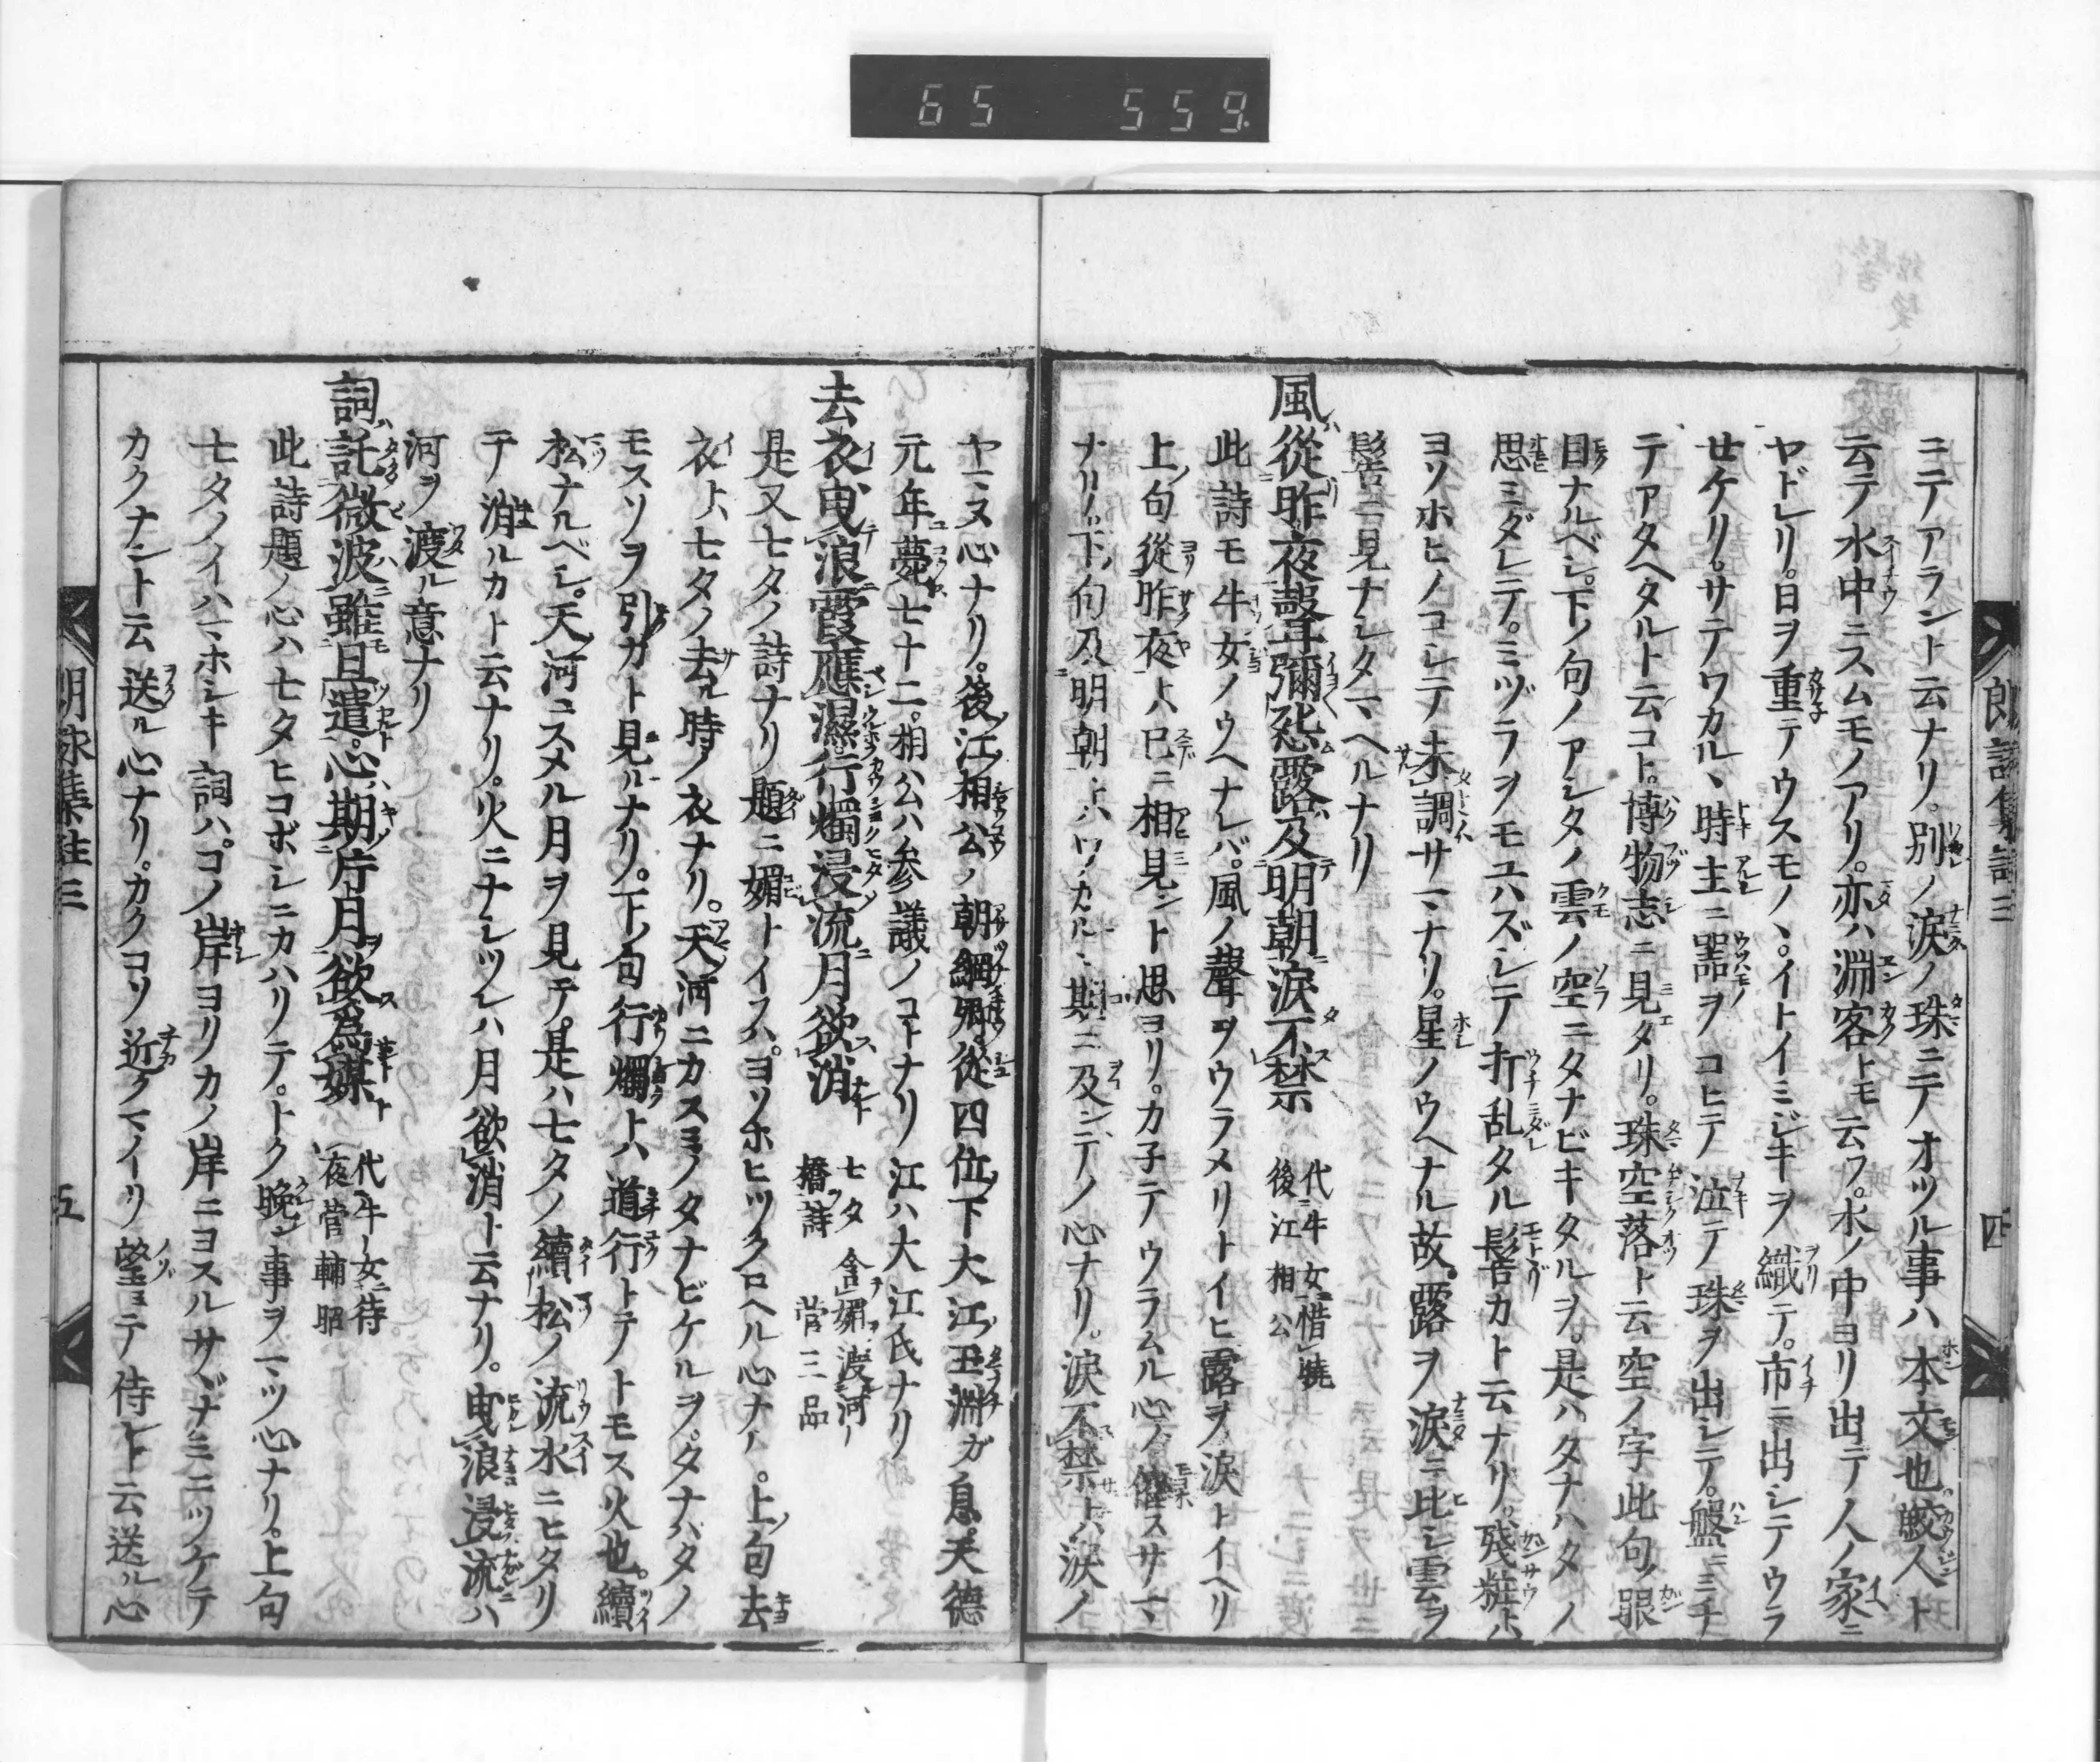 65 559
朗詠集註三
四
ニテアラント云ナリ。別ノ涙ノ珠ニテオツル事ハ本文也。鮫人ト
云テ水中ニスムモノアリ。亦ハ淵客トモ云フ。水ノ中ヨリ出テ人ノ家ニ
ヤドレリ。日ヲ重テウスモノヽ。イトイミジキヲ織テ。市ニ出シテウラ
せケリ。サテワカルヽ時主ニ器ヲコヒテ泣テ珠ヲ出シテ。盤ニミチ
テアタヘタルト云コト。博物志ニ見タリ。珠空落ト云空ノ字此句ノ眼
目ナルベシ。下ノ句ノアシタノ雲ノ空ニタナビキタルヲ。是ハタナハタノ
思ミダレテ。ミヅラヲモユハズシテ打乱タル髻カト云ナリ。殘粧トハ
ヨソホヒノコレテ未調サマナリ。星ノウヘナル故。露ヲ涙ニ比シ雲ヲ
髻ニ見ナシタマヘルナリ
風從昨夜聲彌怨露及明朝涙不禁 代牛女惜曉 後江相公
此詩モ牛女ノウヘナレバ。風ノ聲ヲウラメリトイヒ露ヲ涙トイヘリ
上句從昨夜トハ已ニ相見ント思ヨリ。カ子テウラムル心ノ催スサマ
ナリ。下句及明朝トハワカルヽ期ニ及ンテノ心ナリ。涙不禁トハ涙ノ
ヤマヌ心ナリ。後江相公ノ朝綱卿。從四位下大江玉淵ガ息。天德
元年薨七十二。相公ハ参議ノコトナリ江ハ大江氏ナリ
去衣曳浪霞應濕行燭浸流月欲消 七夕含媚渡河橋詩 菅三品
是又七タノ詩ナリ題ニ媚トイフハ。ヨソホヒツクロヘル心ナリ。上句去
衣トハ七タノ去ル時ノ衣ナリ。天河ニカスミノタナビケルヲ。タナハタノ
モスソヲ引カト見ルナリ。下ノ句行燭トハ道行トテトモス火也。續
松ナルベシ。天河ニスメル月ヲ見テ。是ハ七タノ續松ノ流水ニヒタリ
テ消ルカト云ナリ。火ニナシツレハ月欲消ト云ナリ。曳浪浸流ハ
河ヲ渡ル意ナリ
詞託微波雖且遣心期片月欲爲媒 代牛女待夜 菅輔昭
此詩題ノ心ハ七タヒコボシニカハリテ。トク晩ン事ヲマツ心ナリ。上句
七タノイハマホシキ詞ハ。コノ岸ヨリカノ岸ニヨスルサヾナミニツケテ
カクナント云送ル心ナリ。カクコソ近クマイリ望ミテ侍レト云送ル心
朗詠集註三
五